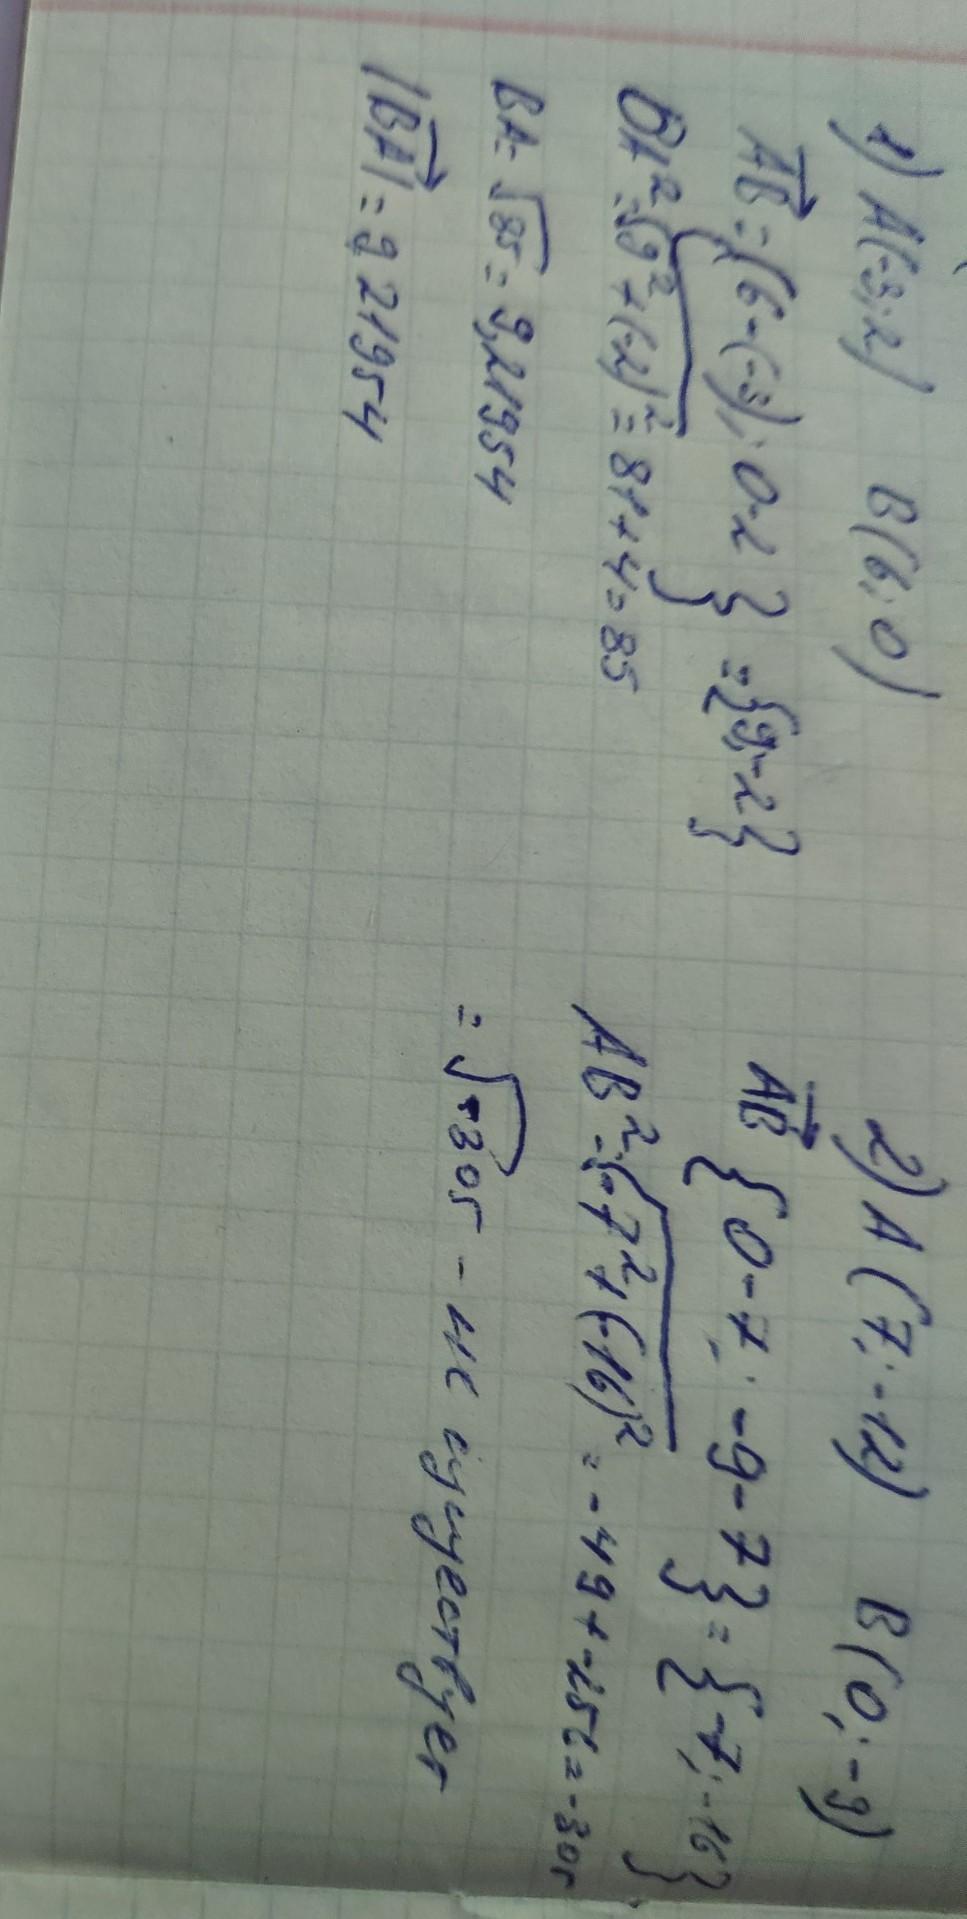 1) A(-3; 2) B(6; 0)
AB = {6-(-3); 0-2} = {9; -2}
BA² = √9² + (-2)² = 81 + 4 = 85
BA = √85 = 9,21954
|BA| = 9,21954
2) A(7; -12) B(0; -9)
AB {0-7; -9-7} = {-7; -16}
AB² = √-7² + (-16)² = -49 + -256 = -305
= √-305 - не существует